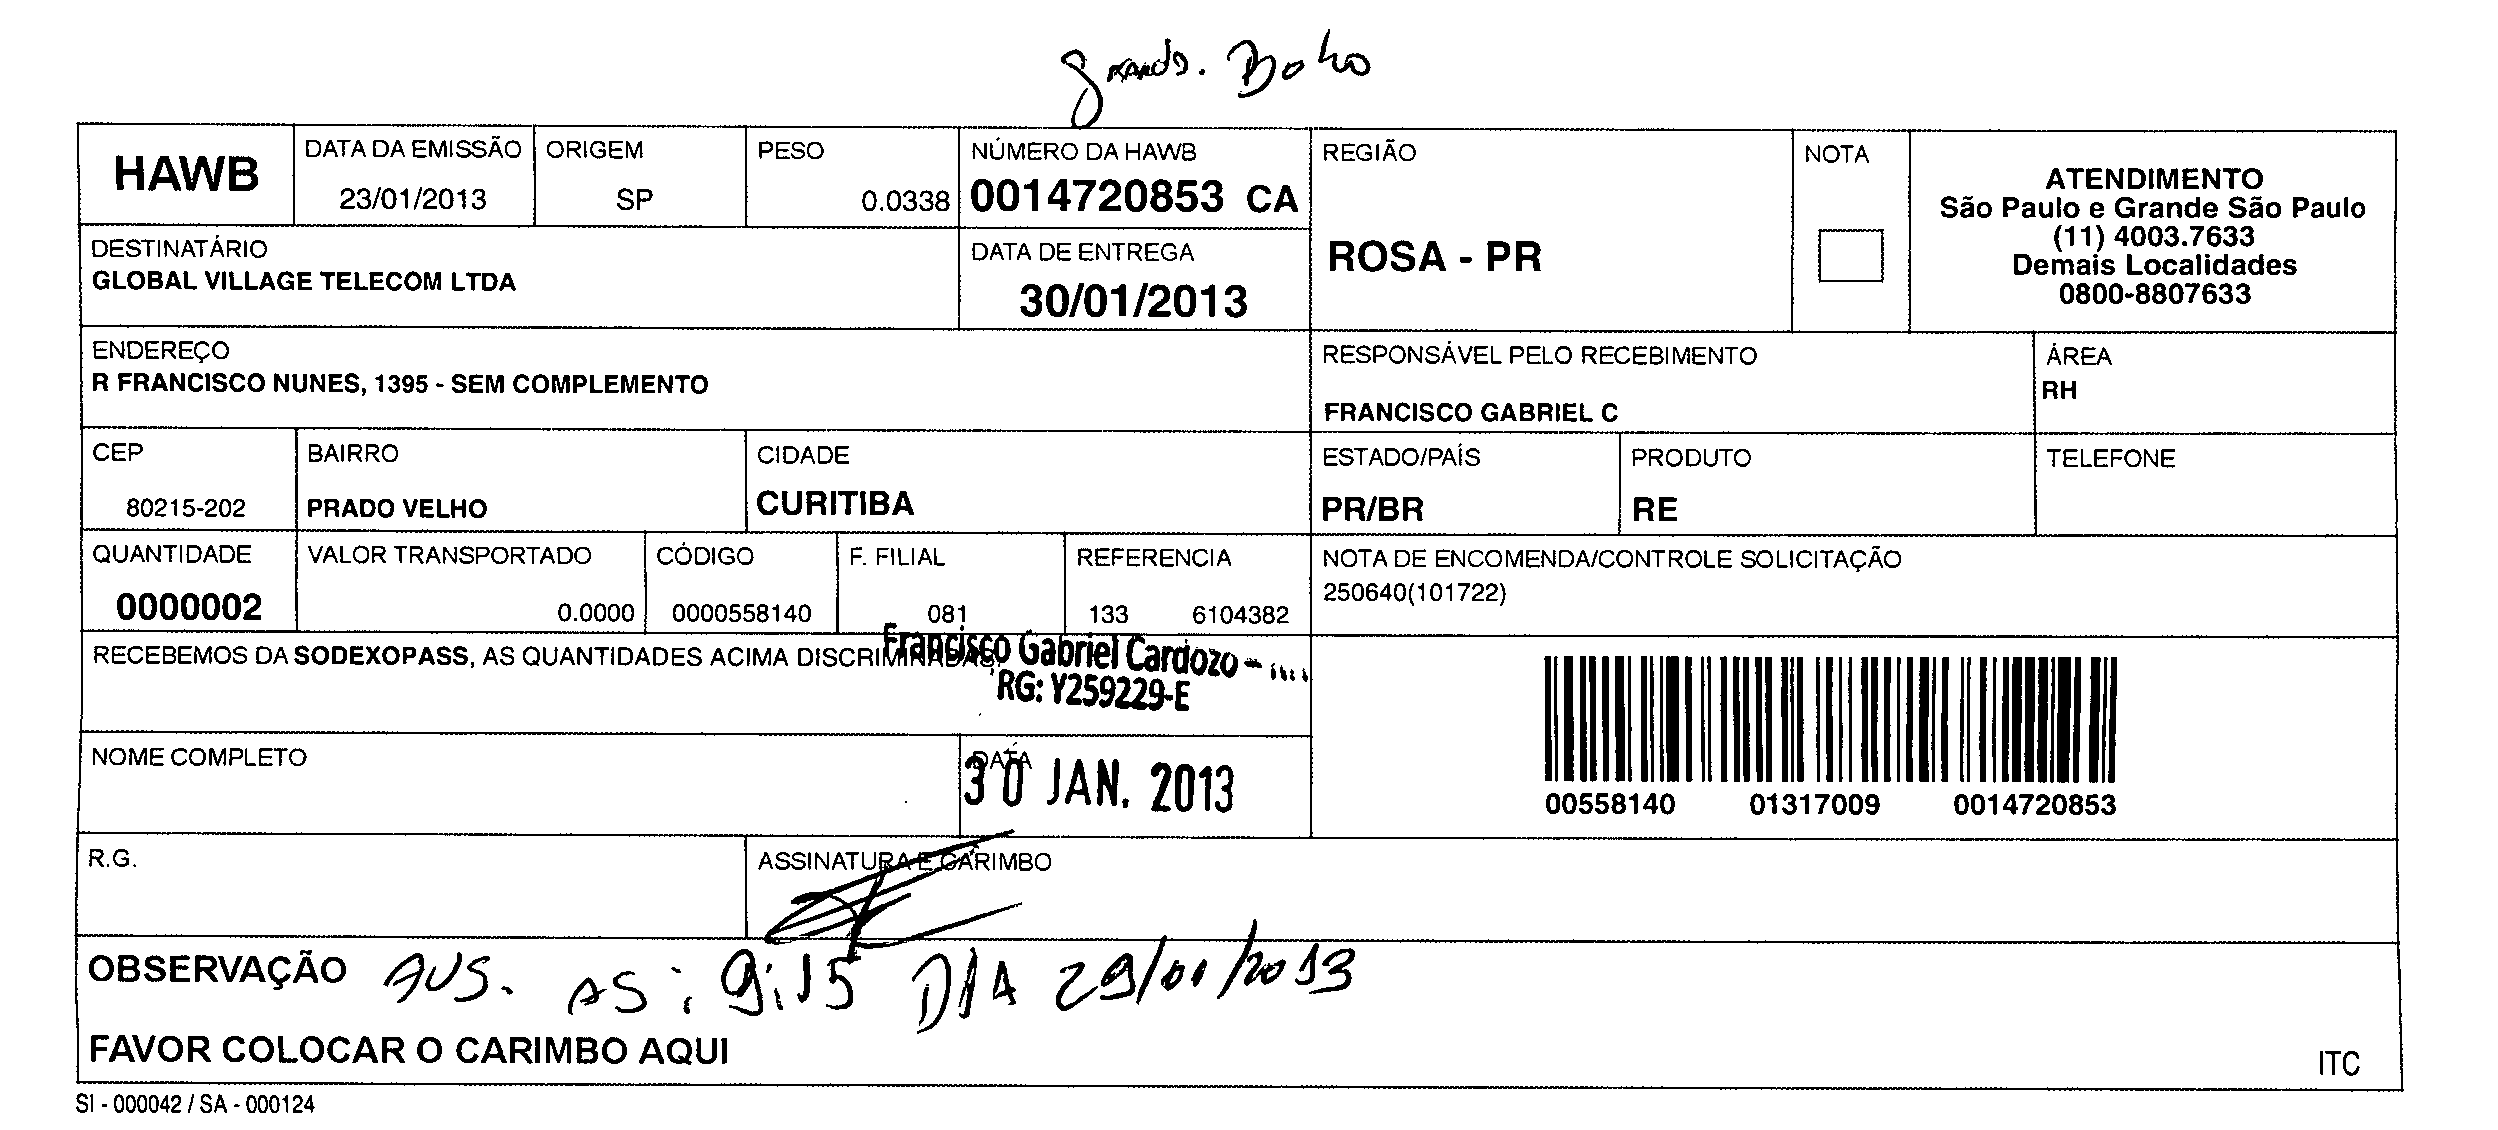 HAWB
DATA DA EMISSÃO
23/01/2013
ORIGEM
SP
PESO
0.0338
NÚMERO DA HAWB
0014720853 CA
REGIÃO
ROSA - PR
NOTA
ATENDIMENTO
São Paulo e Grande São Paulo
(11) 4003.7633
Demais Localidades
0800-8807633
DESTINATÁRIO
GLOBAL VILLAGE TELECOM LTDA
DATA DE ENTREGA
30/01/2013
ENDEREÇO
R FRANCISCO NUNES, 1395 - SEM COMPLEMENTO
RESPONSÁVEL PELO RECEBIMENTO
FRANCISCO GABRIEL C
ÁREA
RH
CEP
80215-202
BAIRRO
PRADO VELHO
CIDADE
CURITIBA
ESTADO/PAÍS
PR/BR
PRODUTO
RE
TELEFONE
QUANTIDADE
0000002
VALOR TRANSPORTADO
0.0000
CÓDIGO
0000558140
F. FILIAL
081
REFERENCIA
133 6104382
NOTA DE ENCOMENDA/CONTROLE SOLICITAÇÃO
250640(101722)
RECEBEMOS DA SODEXOPASS, AS QUANTIDADES ACIMA DISCRIMINADAS.
Francisco Gabriel Cardozo -
RG: Y259229-E
00558140 01317009 0014720853
NOME COMPLETO
DATA
30 JAN. 2013
R.G.
ASSINATURA E CARIMBO
OBSERVAÇÃO AUS. AS: 9:15 DIA 29/01/2013
FAVOR COLOCAR O CARIMBO AQUI
ITC
SI - 000042 / SA - 000124